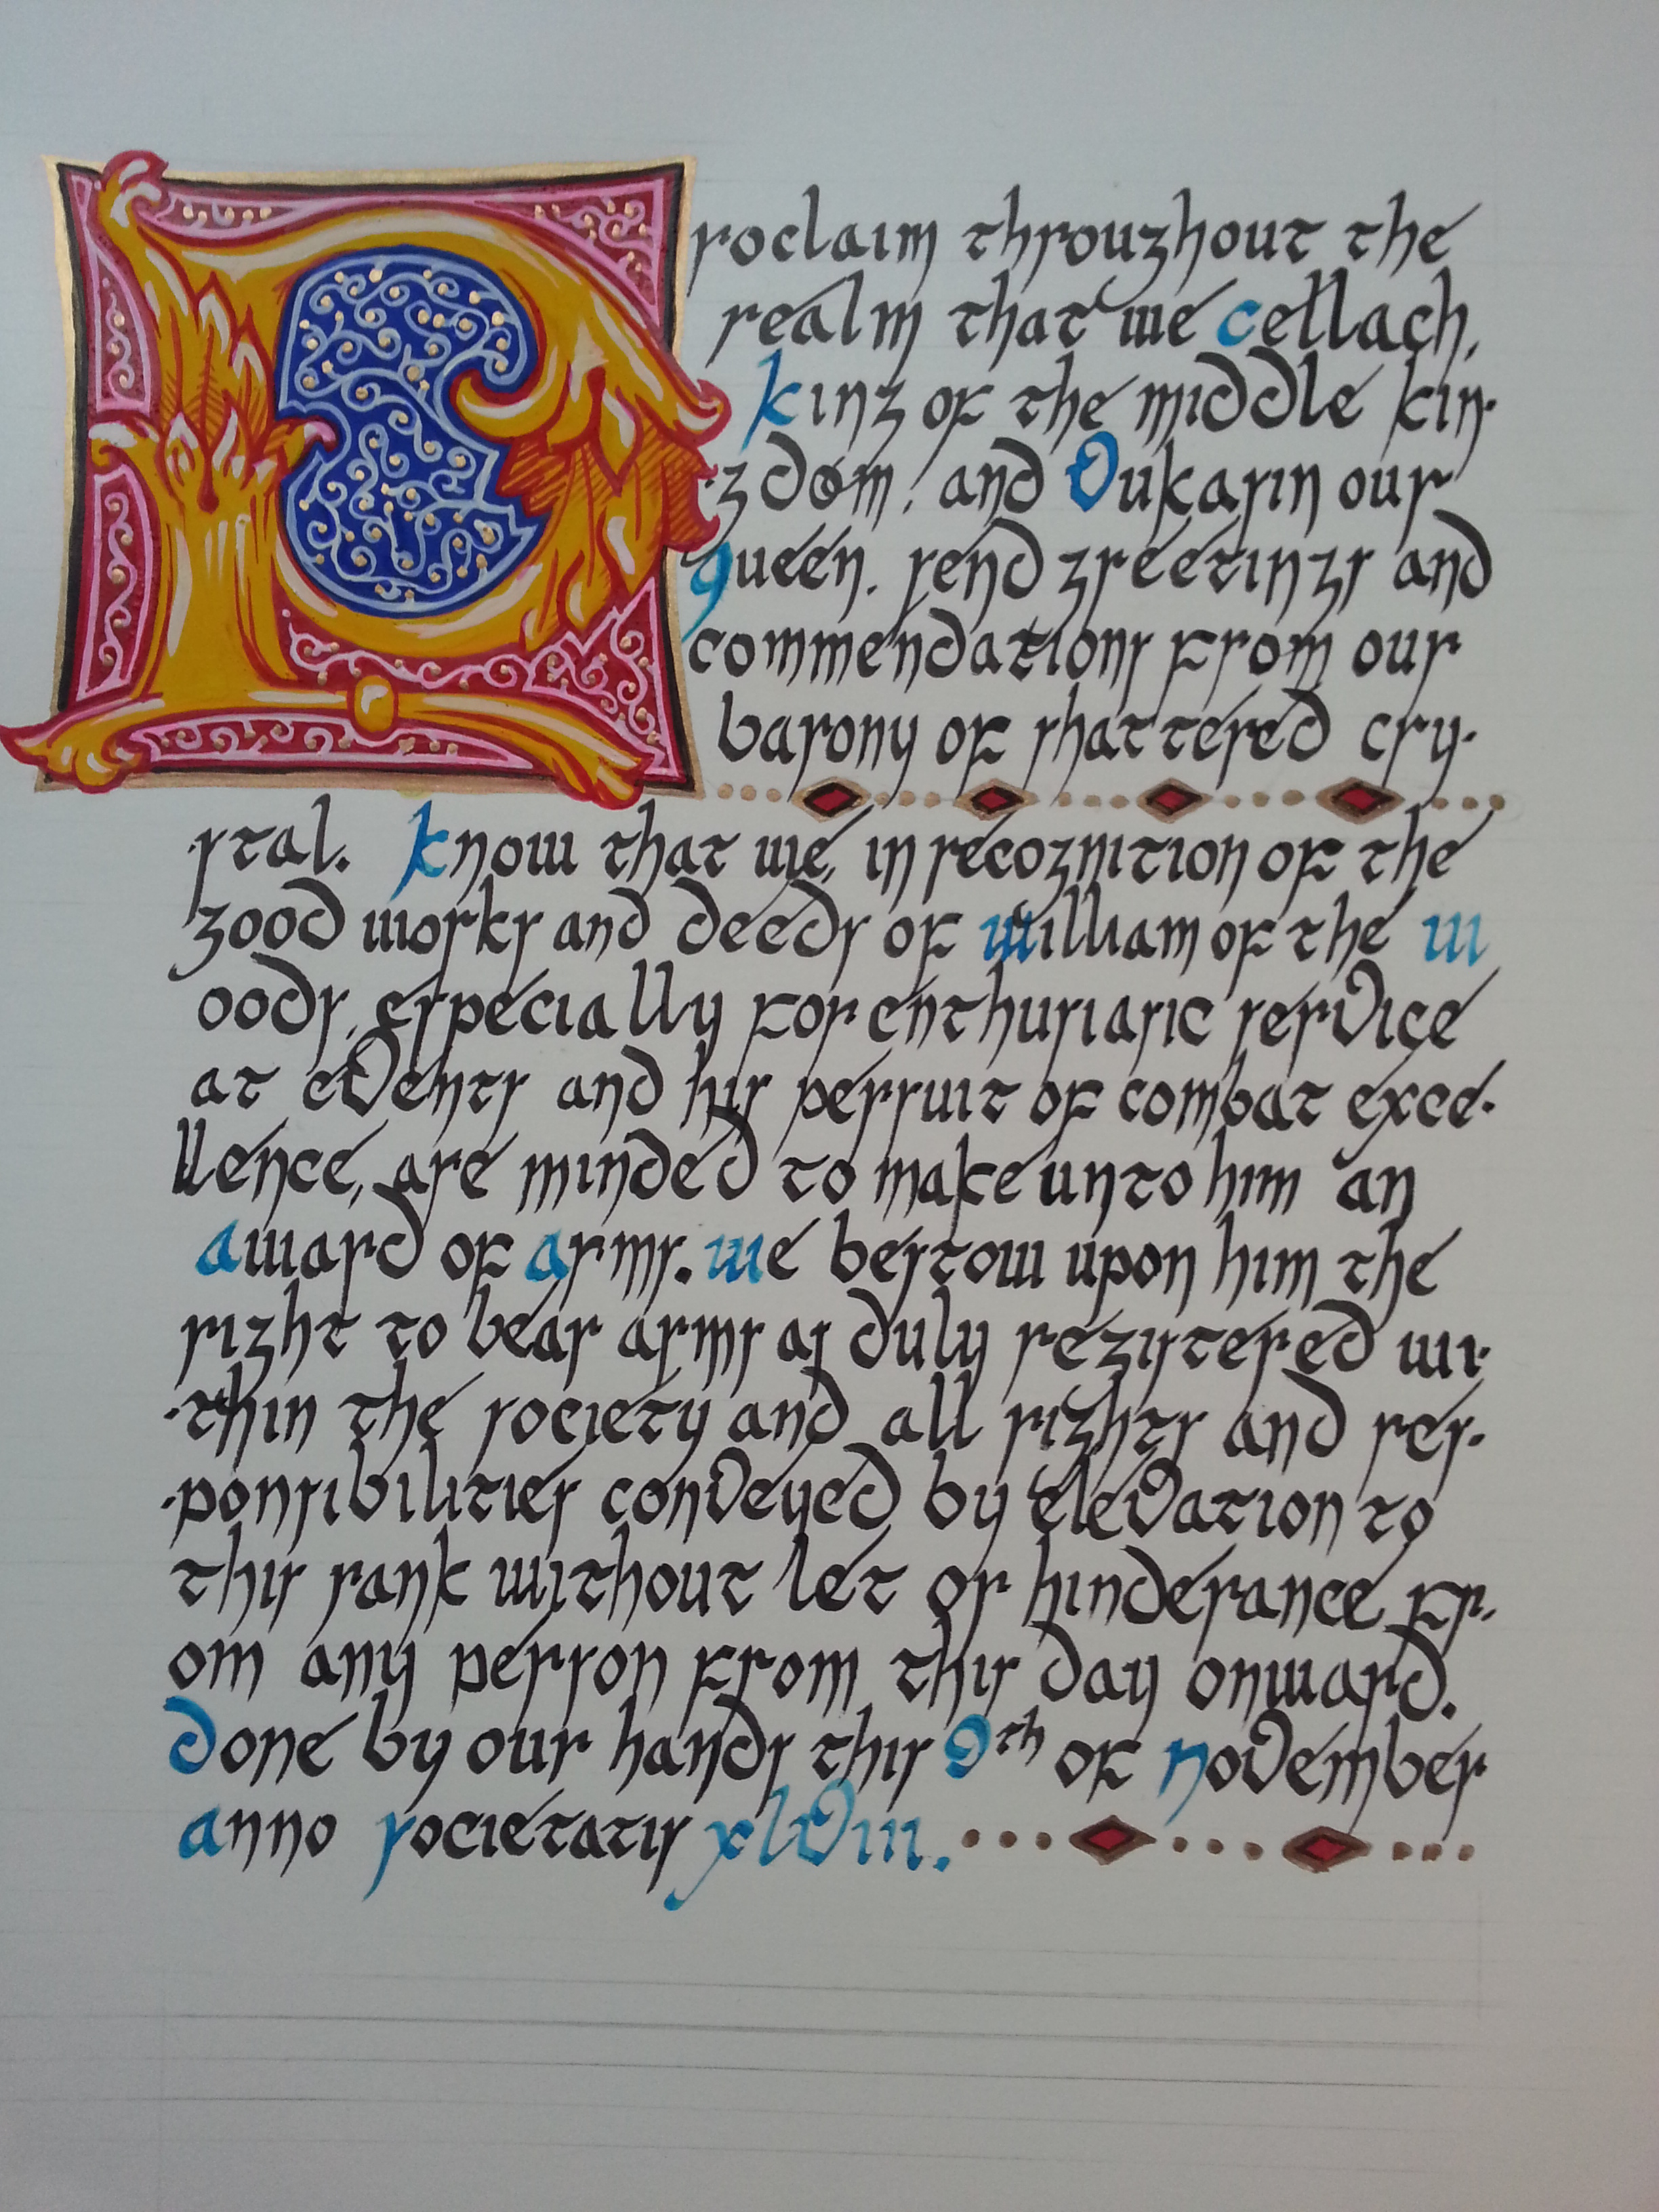 Proclaim throughout the
realm that we Cellach,
King of the middle kin-
-gdom, and Dukarin our
Queen. send greetings and
commendations from our
barony of shattered cry-
stal. Know that we, in recognition of the
good works and deeds of William of the W
oods, especially for enthusiasic service
at events and his persuit of combat exce-
llence, are minded to make unto him an
Award of Arms. We bestow upon him the
right to bear arms as duly registered wi-
-thin the society and all rights and res-
-ponsibilities conveyed by elevation to
this rank without let or hinderance fr-
om any person from this day onward.
Done by our hands this 9th of November
Anno Societatis xlviii.